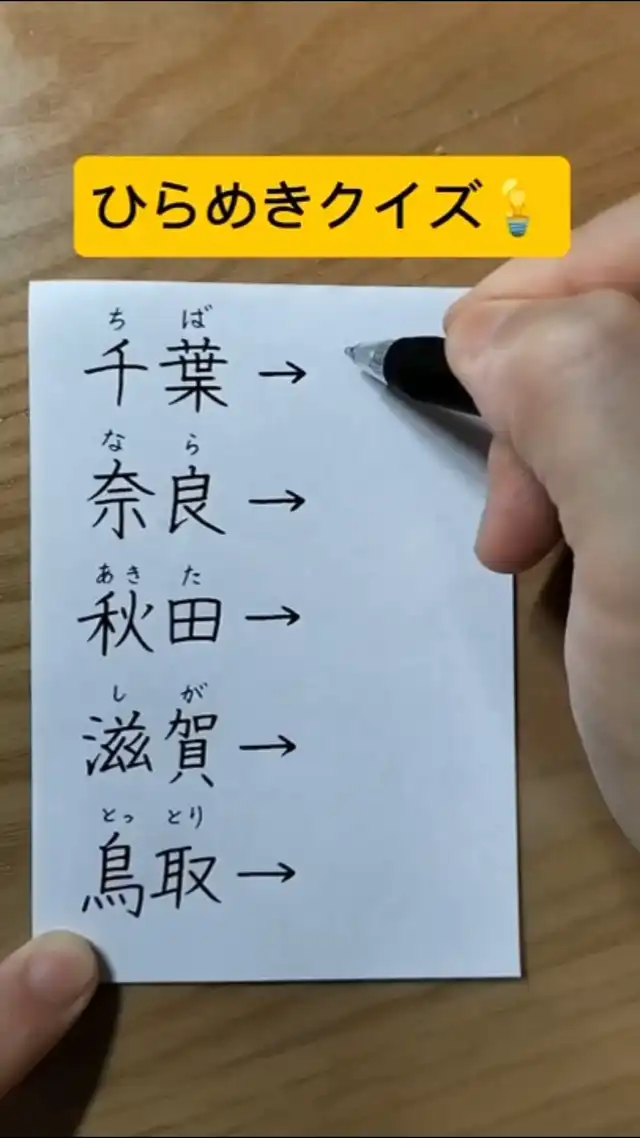 ひらめきクイズ💡
ち ば
千葉→
な ら
奈良→
あき た
秋田→
し が
滋賀→
とっ とり
鳥取→